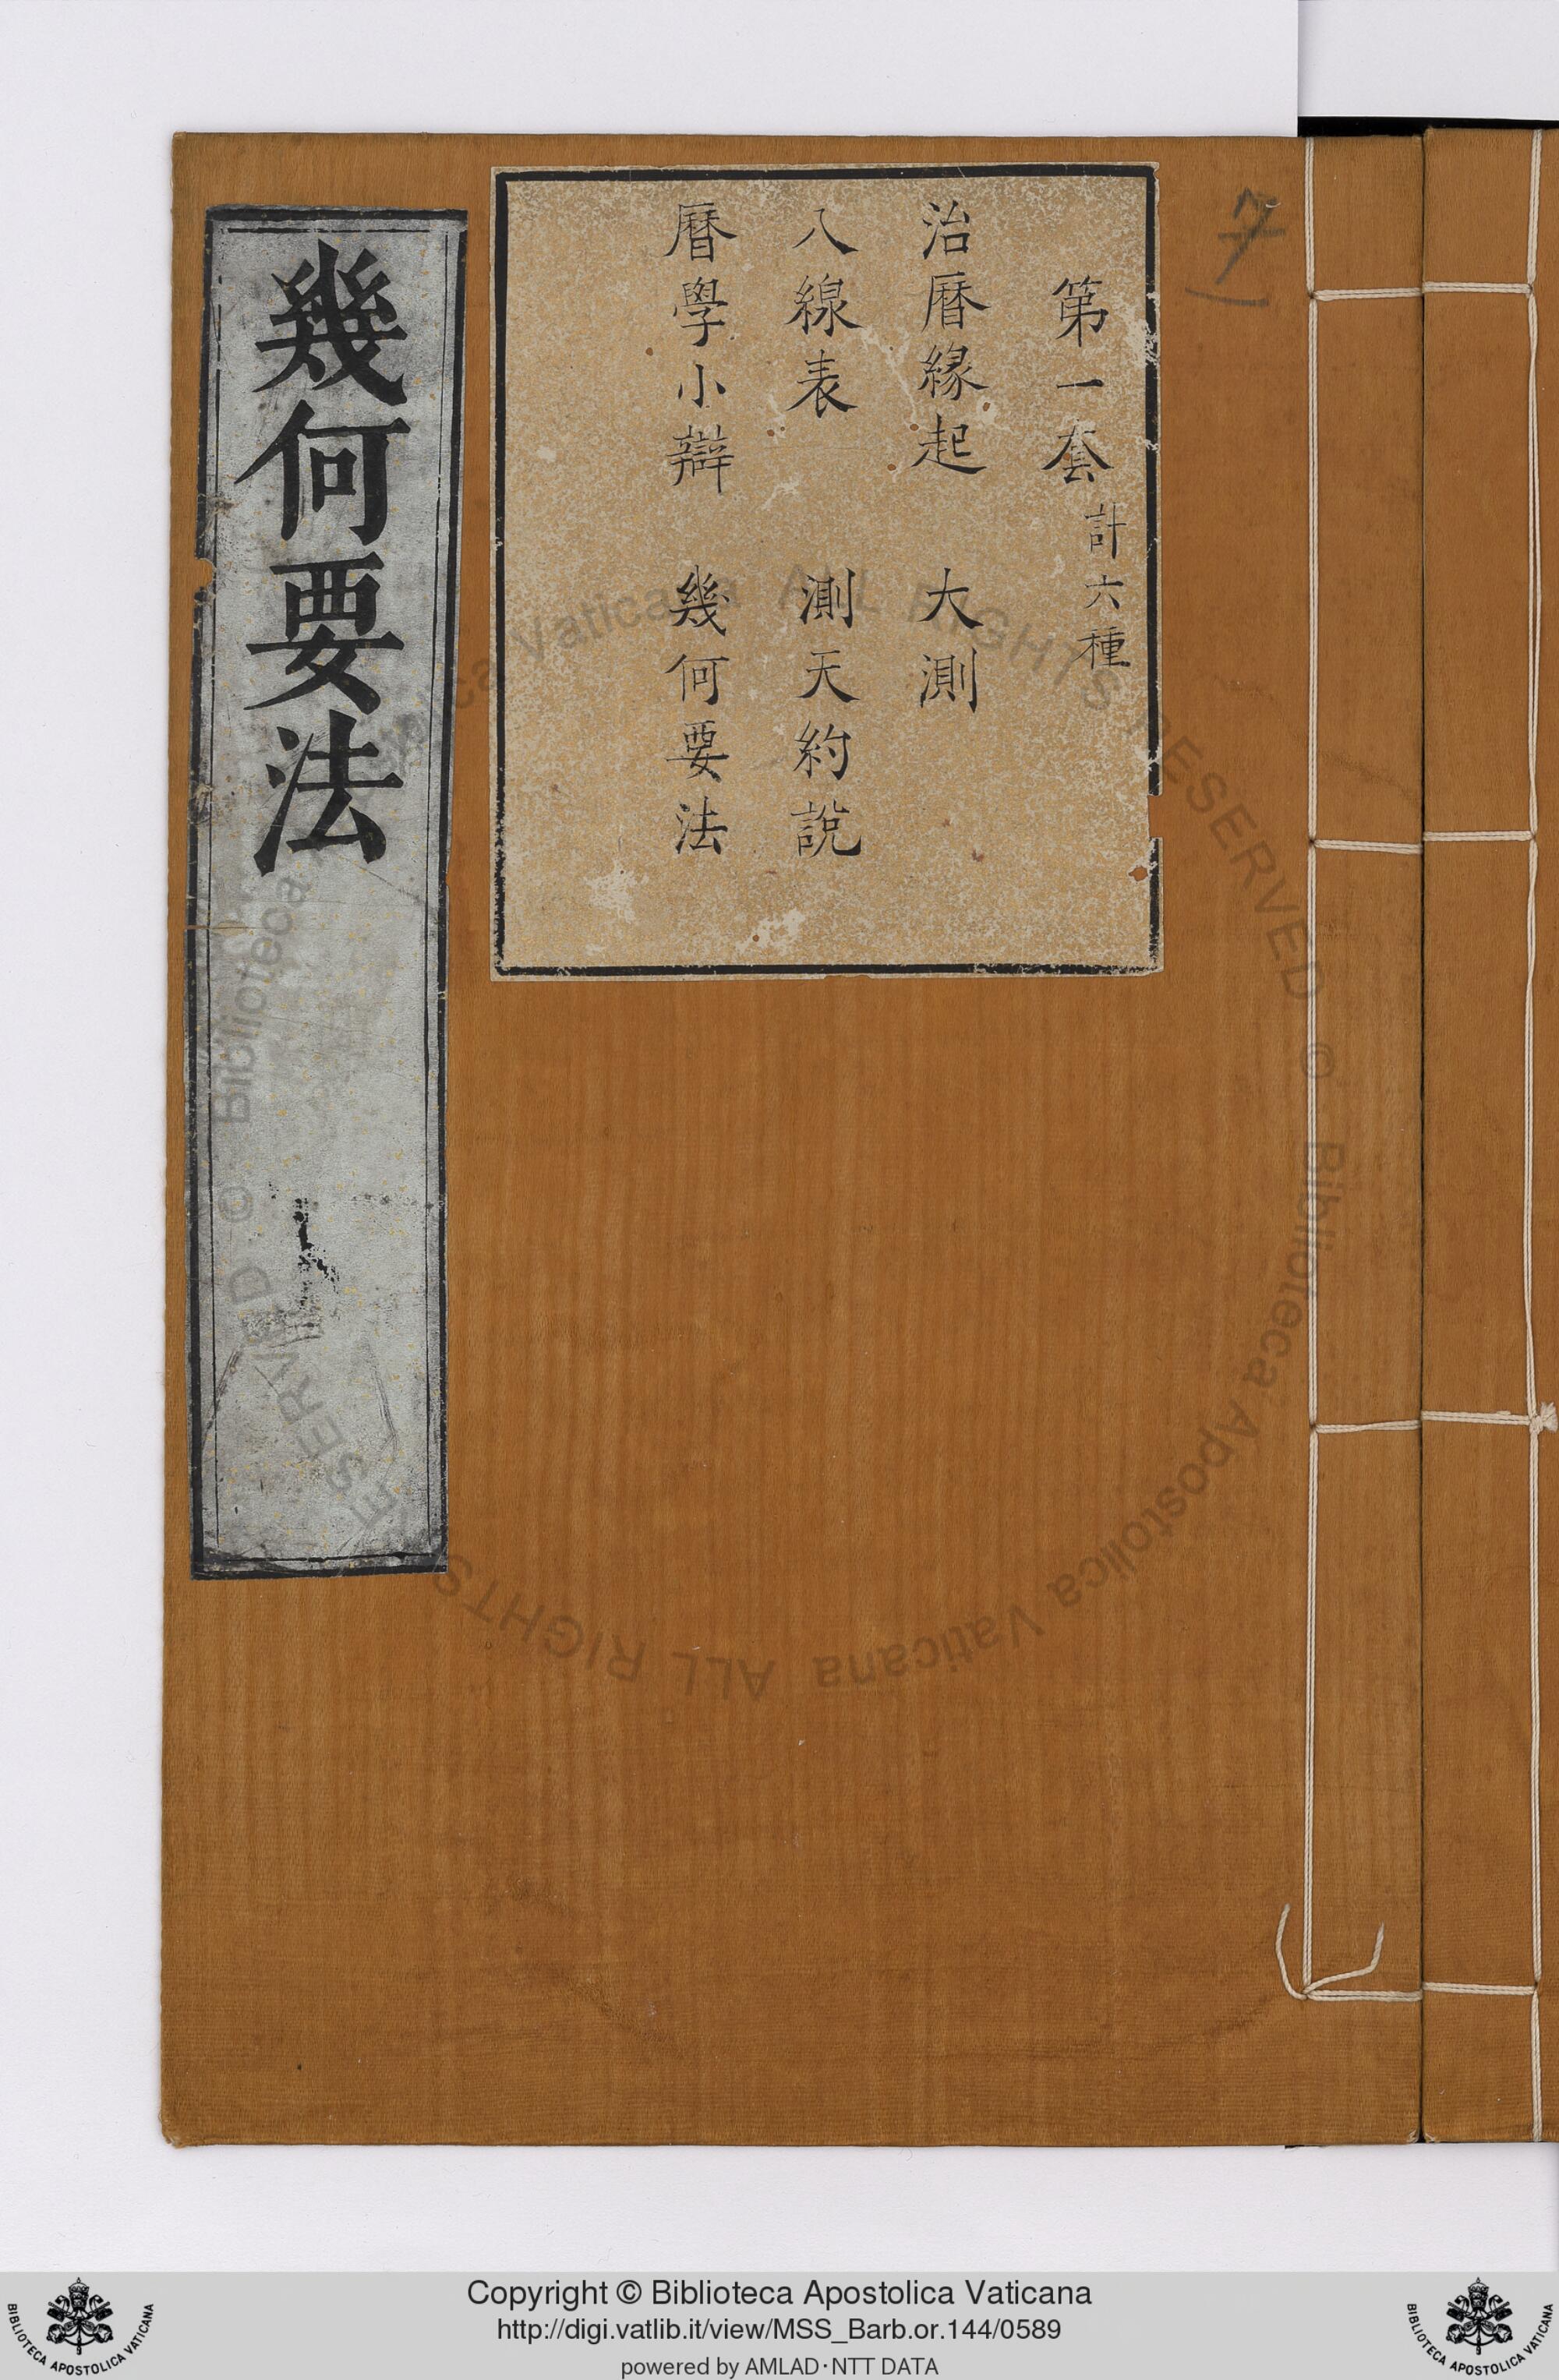 第一套計六種
治曆緣起 大測
八線表 測天約說
曆學小辯 幾何要法
幾何要法
7
Copyright © Biblioteca Apostolica Vaticana
http://digi.vatlib.it/view/MSS_Barb.or.144/0589
powered by AMLAD·NTT DATA
BIBLIOTECA APOSTOLICA VATICANA
BIBLIOTECA APOSTOLICA VATICANA
© Biblioteca Apostolica Vaticana ALL RIGHTS RESERVED © Biblioteca Apostolica Vaticana ALL RIGHTS RESERVED